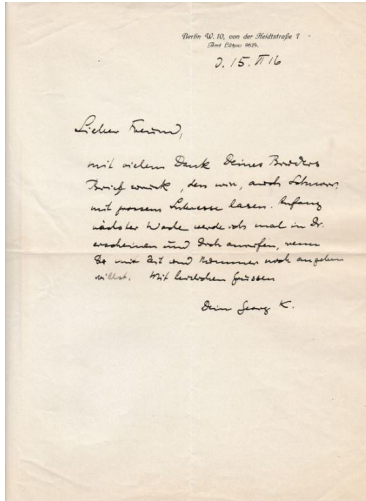 Berlin W. 10, von der Heidtstraße 1
Amt Lützow
D. 15. II 16
Lieber Freund,
mit vielem Dank Deines Bruders
Brief zurück, den wir, auch
mit grossem Interesse lasen. Anfang
nächster Woche werde ich mal in Dr.
erscheinen und Dich anrufen, wenn
Du mir Zeit und Nummer noch angeben
willst. Mit herzlichen Grüssen
Dein Georg K.